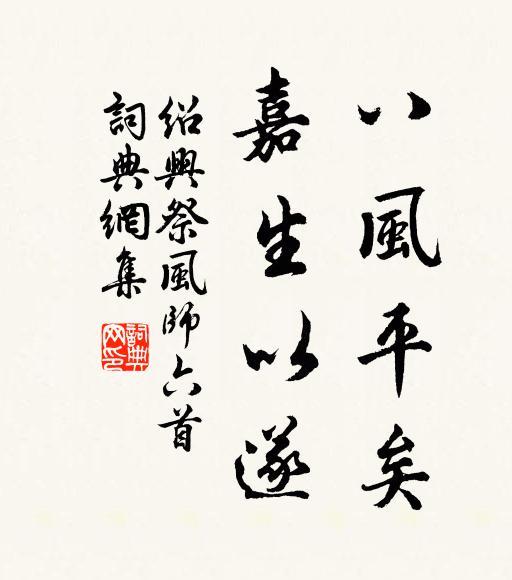 八風平矣
嘉生以遂
紹興祭風師六首
詞典網集
詞典
网印